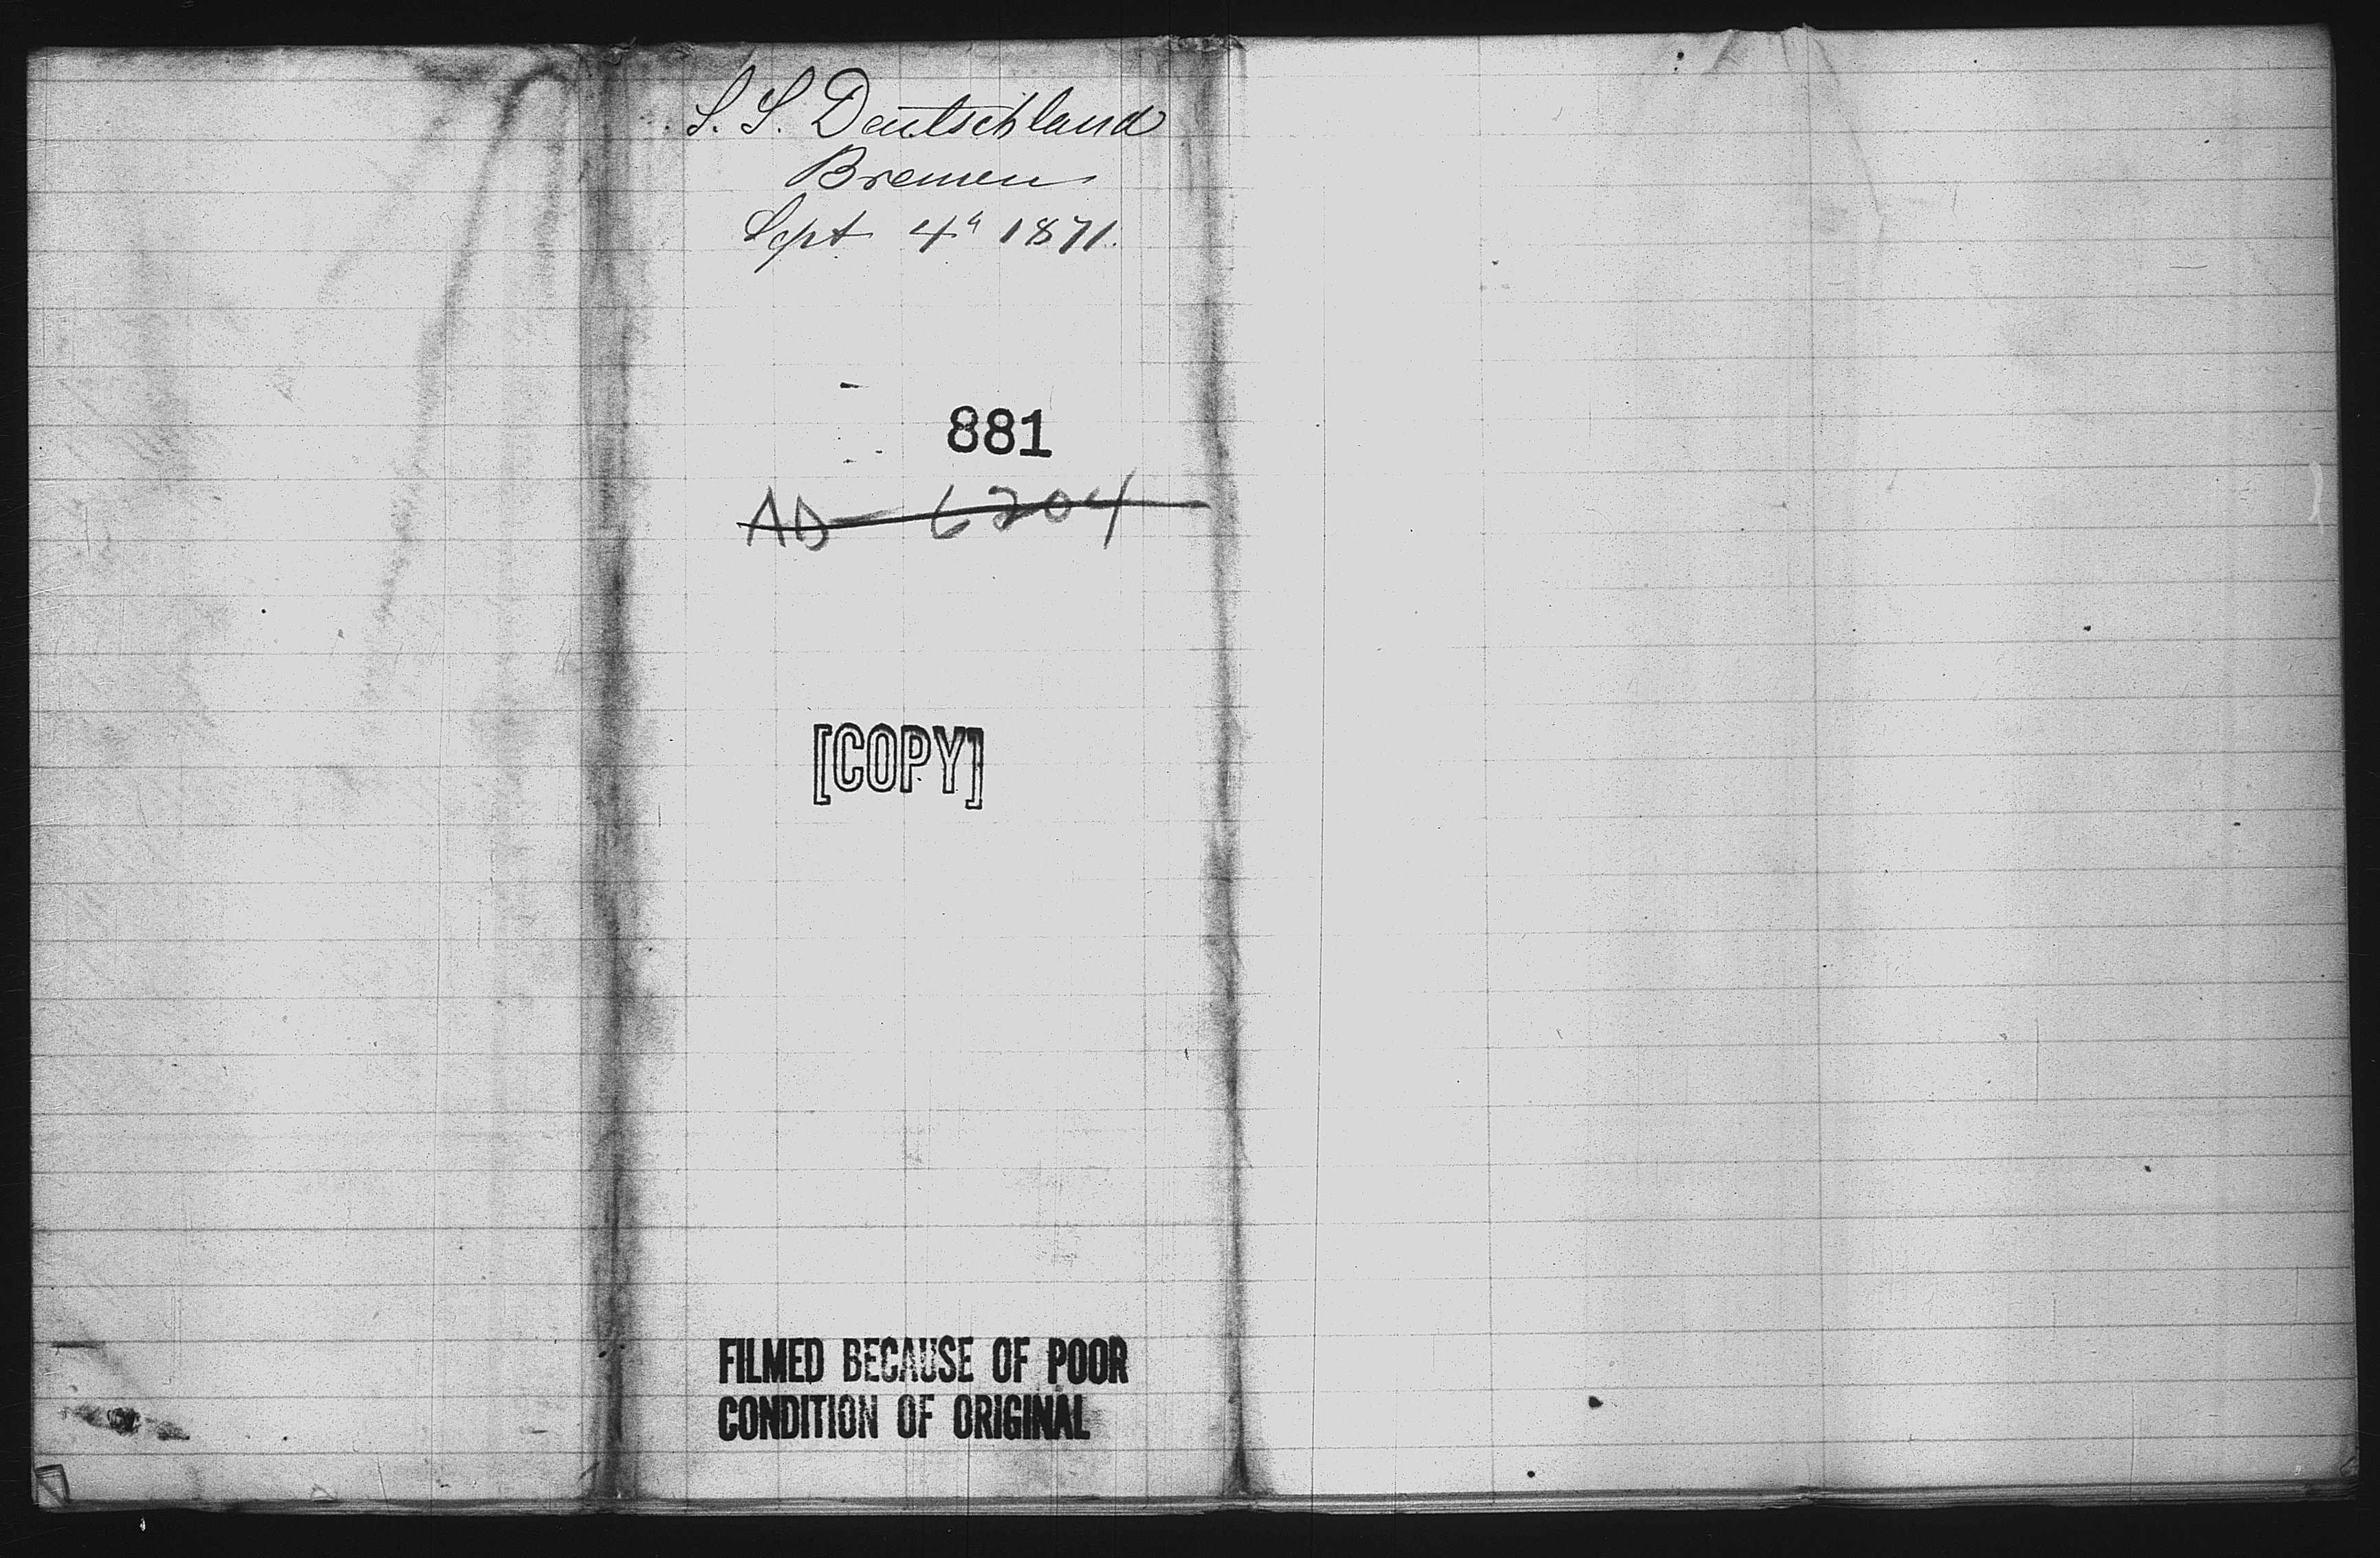 S. S. Deutschland
Bremen
Sept 4" 1871.
881
AD - 6204
[COPY]
FILMED BECAUSE OF POOR
CONDITION OF ORIGINAL